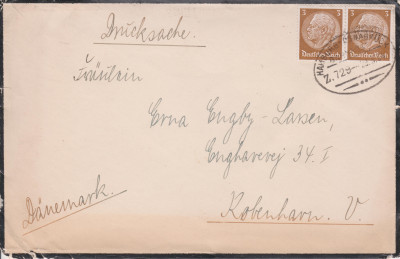 Drucksache.
3 3
Deutsches Reich Deutsches Reich
Z.729
Fräulein
Erna Engby-Larsen,
Enghavevej 34. I
Dänemark.
København. V.